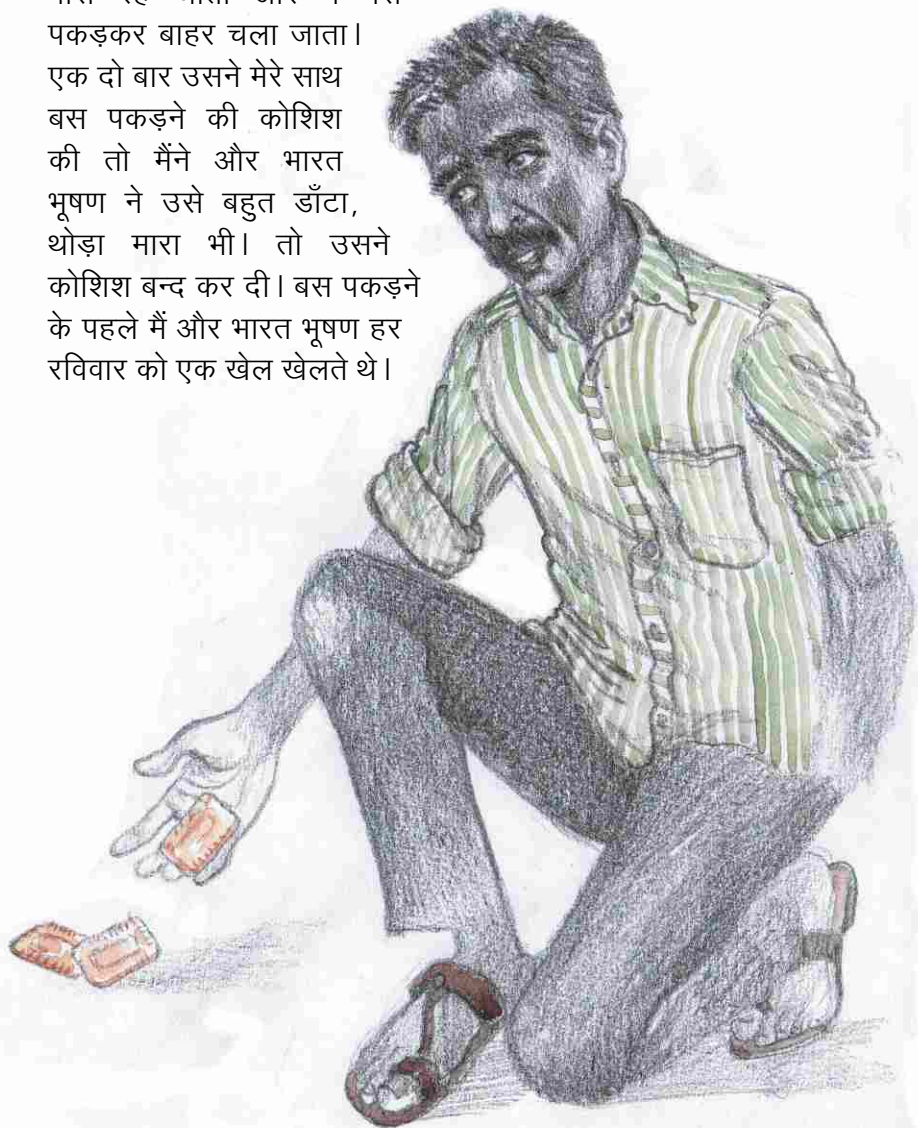 पकड़कर बाहर चला जाता।
एक दो बार उसने मेरे साथ
बस पकड़ने की कोशिश
की तो मैंने और भारत
भूषण ने उसे बहुत डाँटा,
थोड़ा मारा भी। तो उसने
कोशिश बन्द कर दी। बस पकड़ने
के पहले मैं और भारत भूषण हर
रविवार को एक खेल खेलते थे।